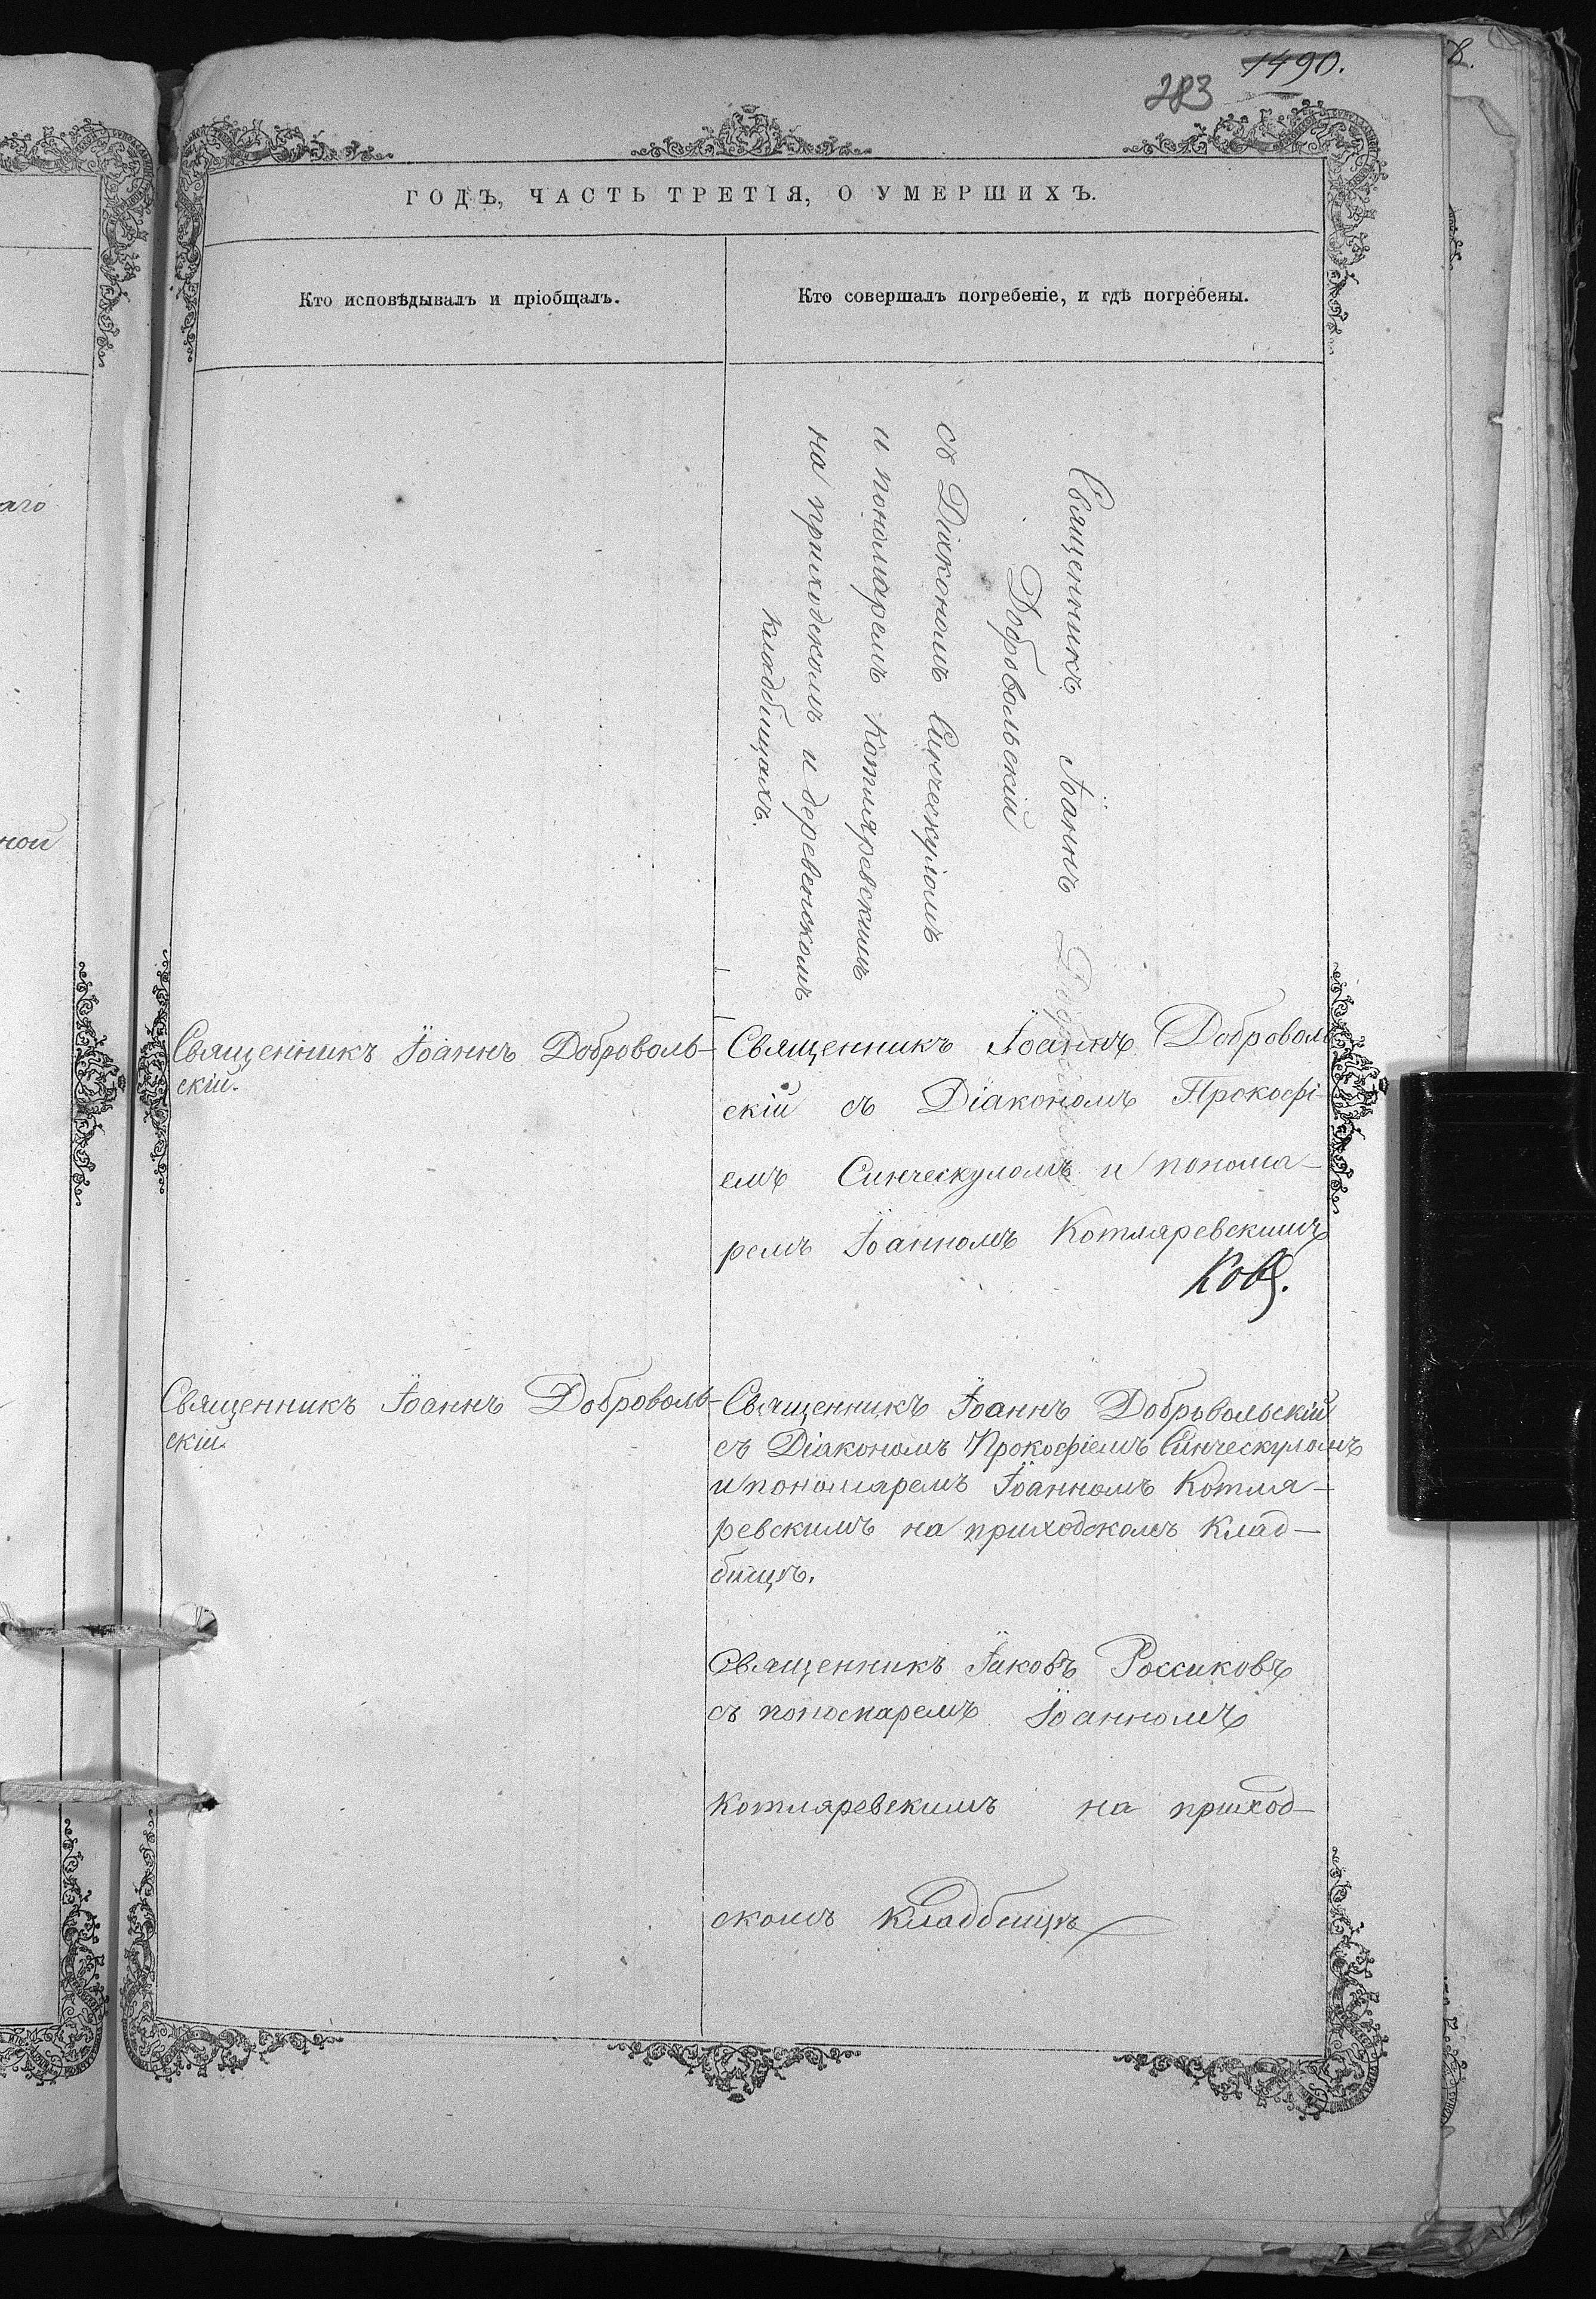 1490.
283
ГОДЪ, ЧАСТЬ ТРЕТІЯ, О УМЕРШИХЪ.
Кто исповѣдывалъ и пріобщалъ.
Кто совершалъ погребеніе, и гдѣ погребены.
Священникъ Іоаннъ
Добровольскій
съ Діакономъ Синческуломъ
и пономаремъ Котляревскимъ
на приходскомъ и деревенскомъ
кладбищахъ.
Священникъ Іоаннъ Доброволь-
скій.
Священникъ Іоаннъ Доброволь
скій съ Діакономъ Прокофі-
емъ Синческуломъ и понома-
ремъ Іоанномъ Котляревскимъ
Священникъ Іоаннъ Доброволь-
скій.
Священникъ Іоаннъ Добровольскій
съ Діакономъ Прокофіемъ Синческуломъ
и пономаремъ Іоанномъ Котля-
ревскимъ на приходскомъ клад-
бищѣ.
Священникъ Іаковъ Россиковъ
съ пономаремъ Іоанномъ
Котляревскимъ на приход-
скомъ кладбищѣ
аго
ной
8.